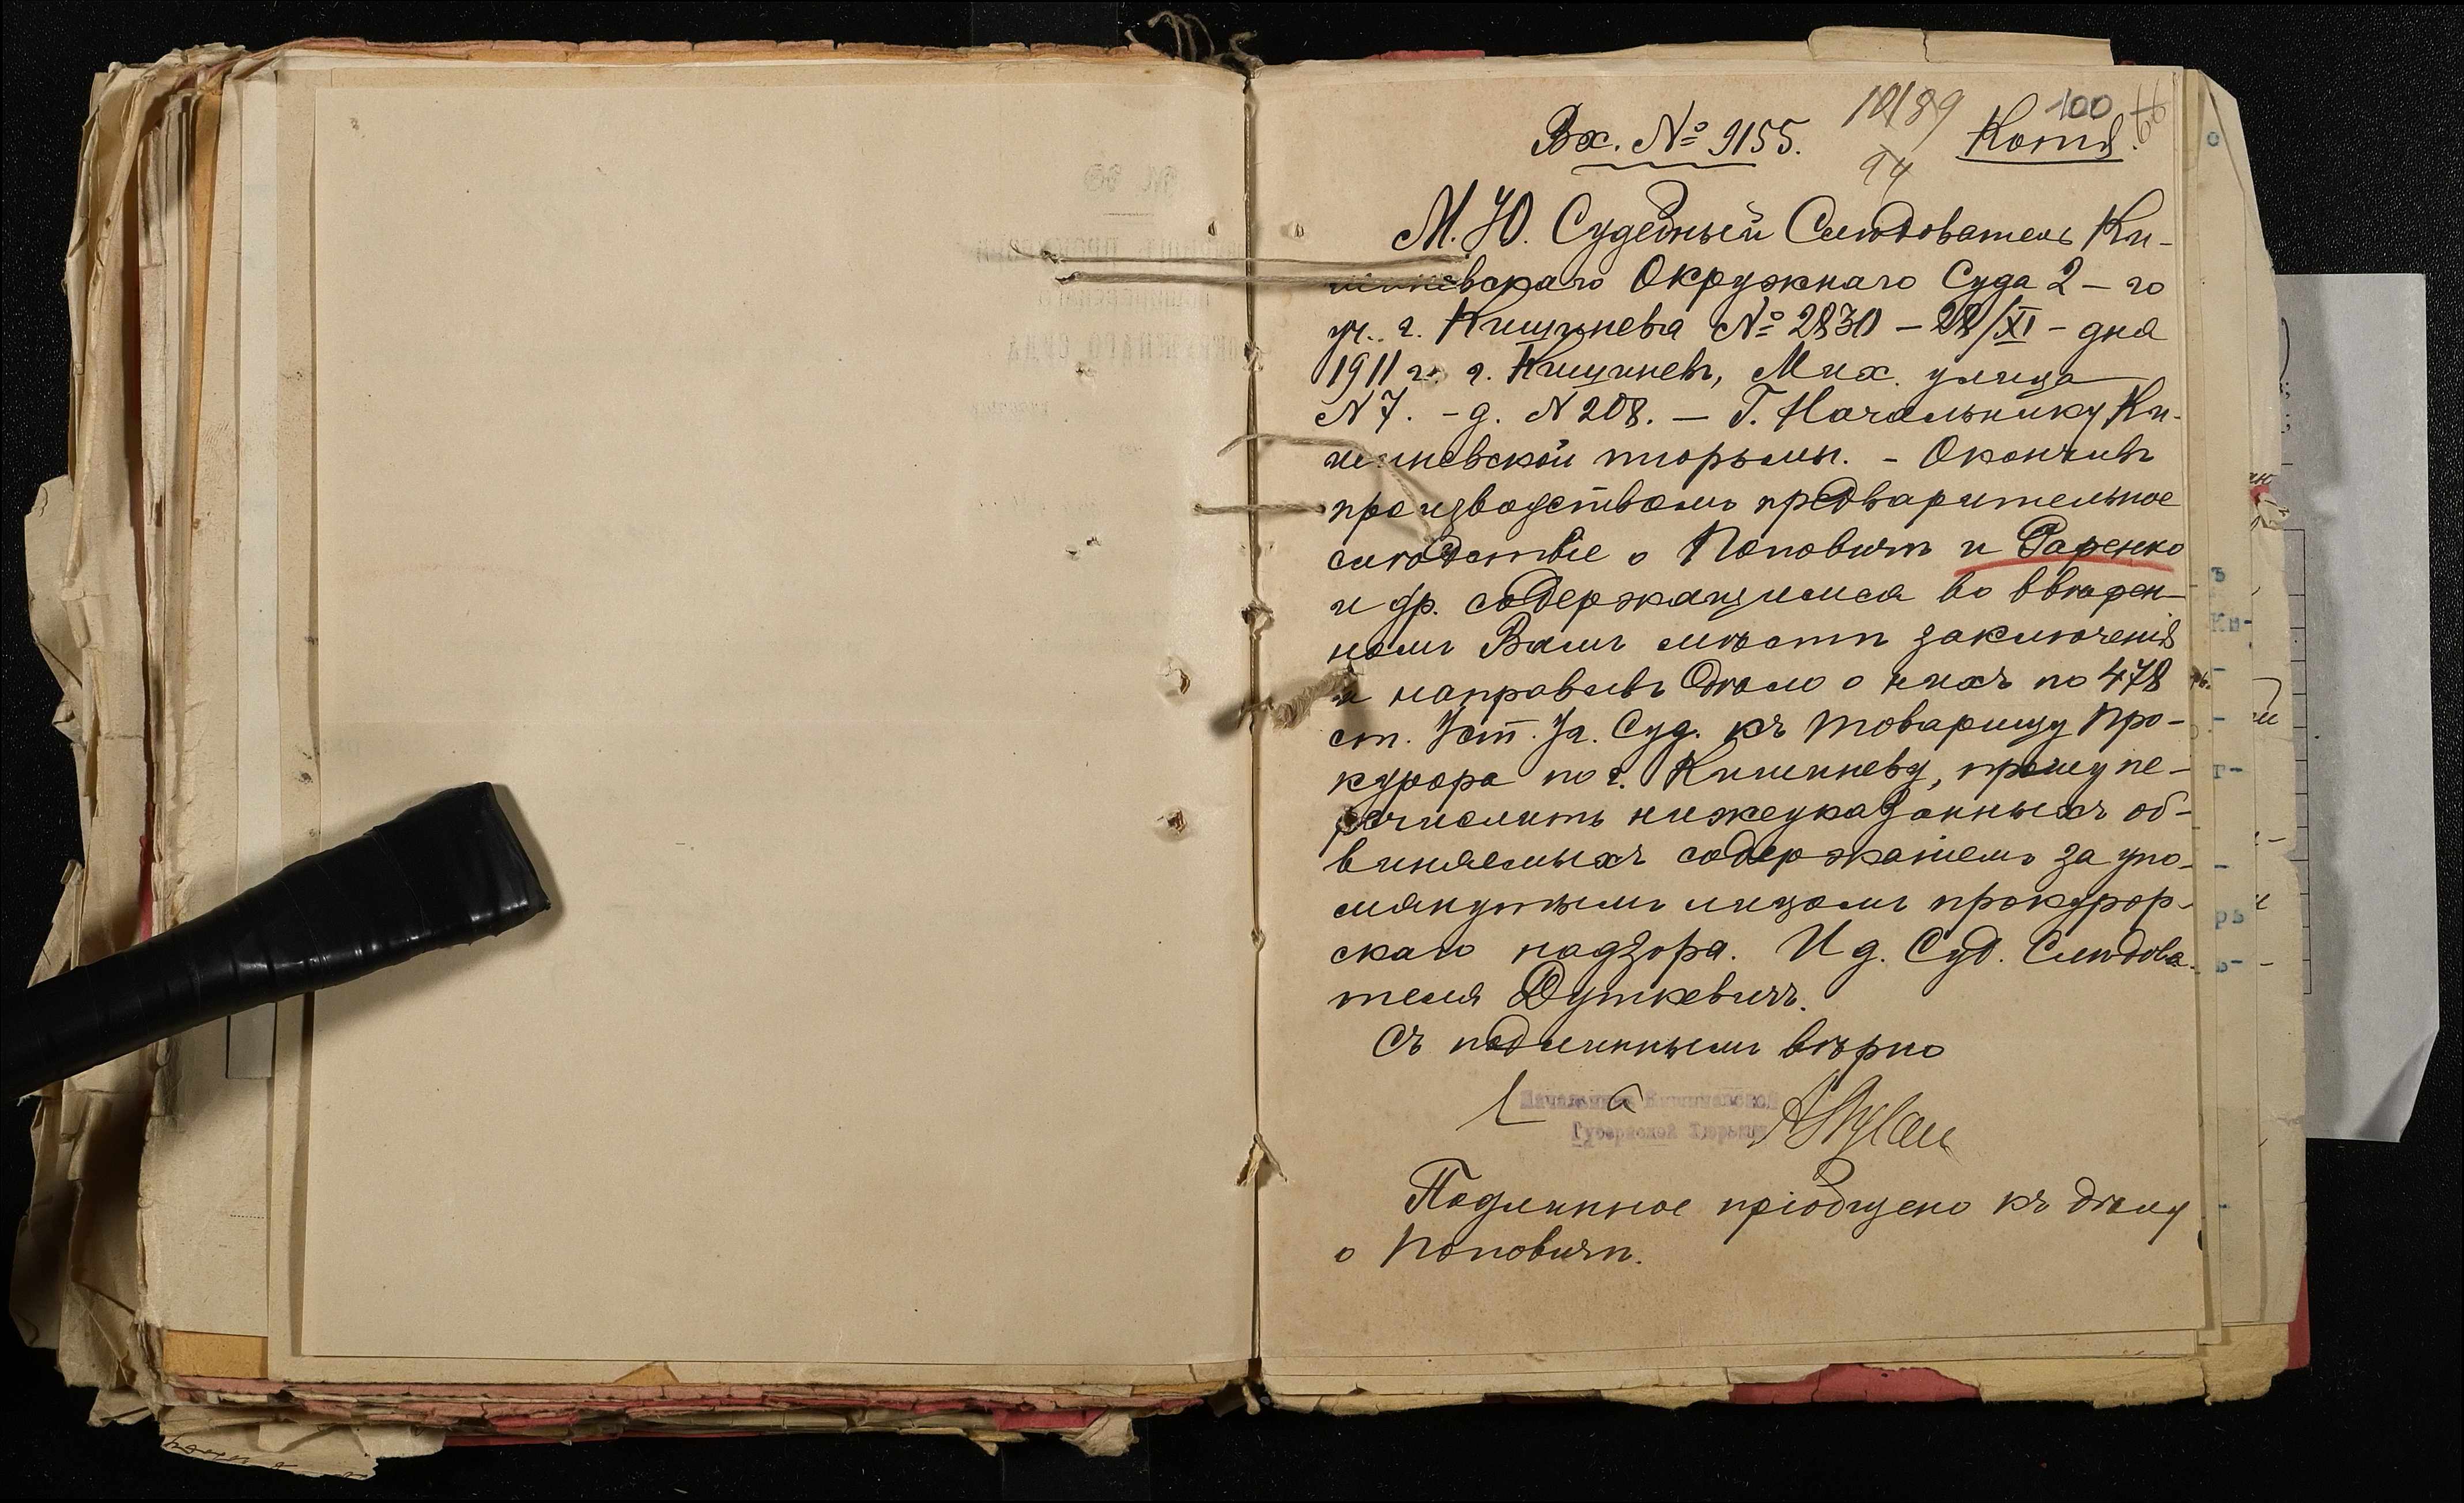 100
Вх. № 9155. Копія.
94
М. Ю. Судебный Слѣдователь Ки-
шиневскаго Окружнаго Суда 2-го
уч. г. Кишинева № 2830 — 28/XI - дня
1911 г. г. Кишиневъ, Мих. улица
N 7. - д. N 208. — Г. Начальнику Ки-
шиневской тюрьмы. - Окончивъ
производствомъ предварительное
слѣдствіе о Поповичѣ и Фаренко
и др. содержащимися во ввѣрен-
номъ Вамъ мѣстѣ заключенія
и направивъ дѣло о нихъ по 478
ст. Уст. Уг. Суд. къ товарищу Про-
курора по г. Кишиневу, прошу пе-
речислить нижеуказанныхъ об-
виняемыхъ содержаніемъ за упо-
мянутымъ лицомъ прокурор-
скаго надзора. И д. Суд. Слѣдова-
теля Дуткевичъ.
Съ подлиннымъ вѣрно
Начальникъ Кишиневской
Губернской Тюрьмы
Подлинное пріобщено къ дѣлу
о Поповичѣ.